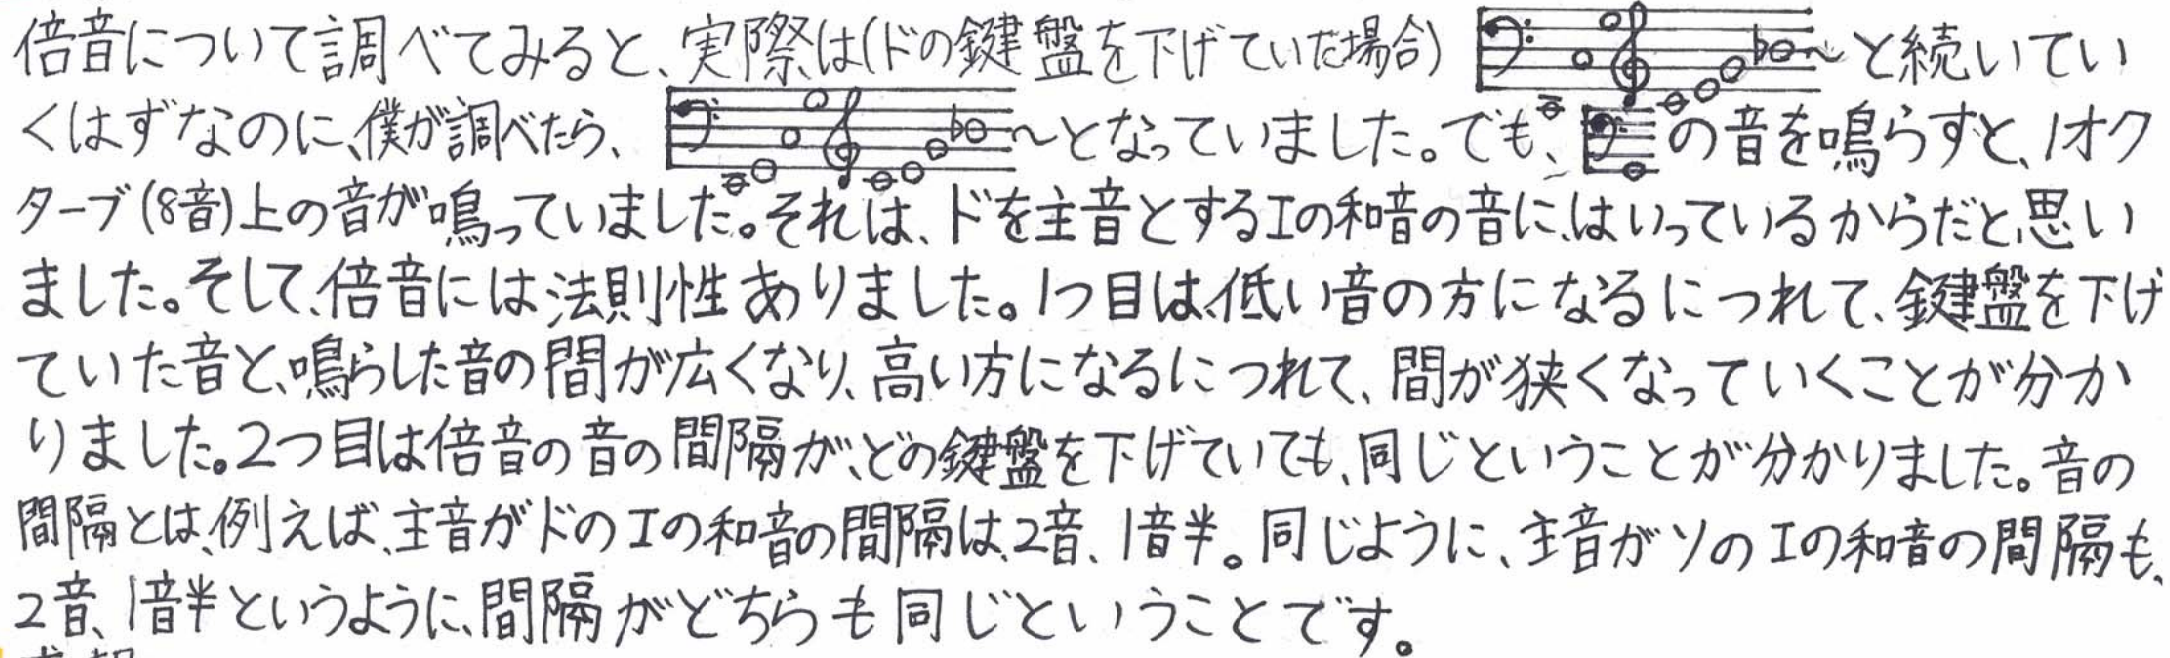 倍音について調べてみると、実際は(ドの鍵盤を下げていた場合) 〜と続いてい
くはずなのに、僕が調べたら、 〜となっていました。でも、 の音を鳴らすと、1オク
ターブ(8音)上の音が鳴っていました。それは、ドを主音とするIの和音の音に、はいっているからだと、思い
ました。そして、倍音には法則性ありました。1つ目は、低い音の方になるにつれて、鍵盤を下げ
ていた音と、鳴らした音の間が広くなり、高い方になるにつれて、間が狭くなっていくことが分か
りました。2つ目は倍音の音の間隔が、どの鍵盤を下げていても、同じということが分かりました。音の
間隔とは、例えば、主音がドのIの和音の間隔は、2音、1音半。同じように、主音がソのIの和音の間隔も、
2音、1音半というように、間隔がどちらも同じということです。